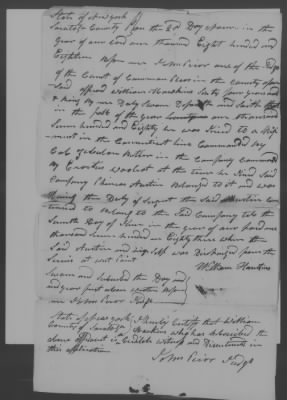 State of New york
Saratoga County On the Day of in the
year of our Lord one thousand Eight hundred and
Eighteen before me John Prior one of the Judges
of the Court of Common Pleas in the County afore
Said appeared William Hawkins
being by me Duly Sworn Deposeth and Saith that
in the of the year one thousand
Seven hundred and Eighty he was to a Regi
ment in the Connecticut line Commanded by
Col in the Company Commanded
By Erastus Woolcot at the time he Said
Company Phineas Austin Belonged to it and was
the Duty of Sergent the Said Austin con
tinued to Belong to the Said Company till the
Day of June in the year of our Lord one
thousand Seven hundred and Eighty three when the
Said Austin and my Self was Discharged from the
Service at west Point
William Hawkins
Sworn and Subscribed the Day and
year first above written before
me John Prior Judge
State of New york
County of Saratoga I hereby Certify that William
Hawkins who has Subscribed the
above affidavit is a Credible witness and Disinterested in
this application
John Prior Judge